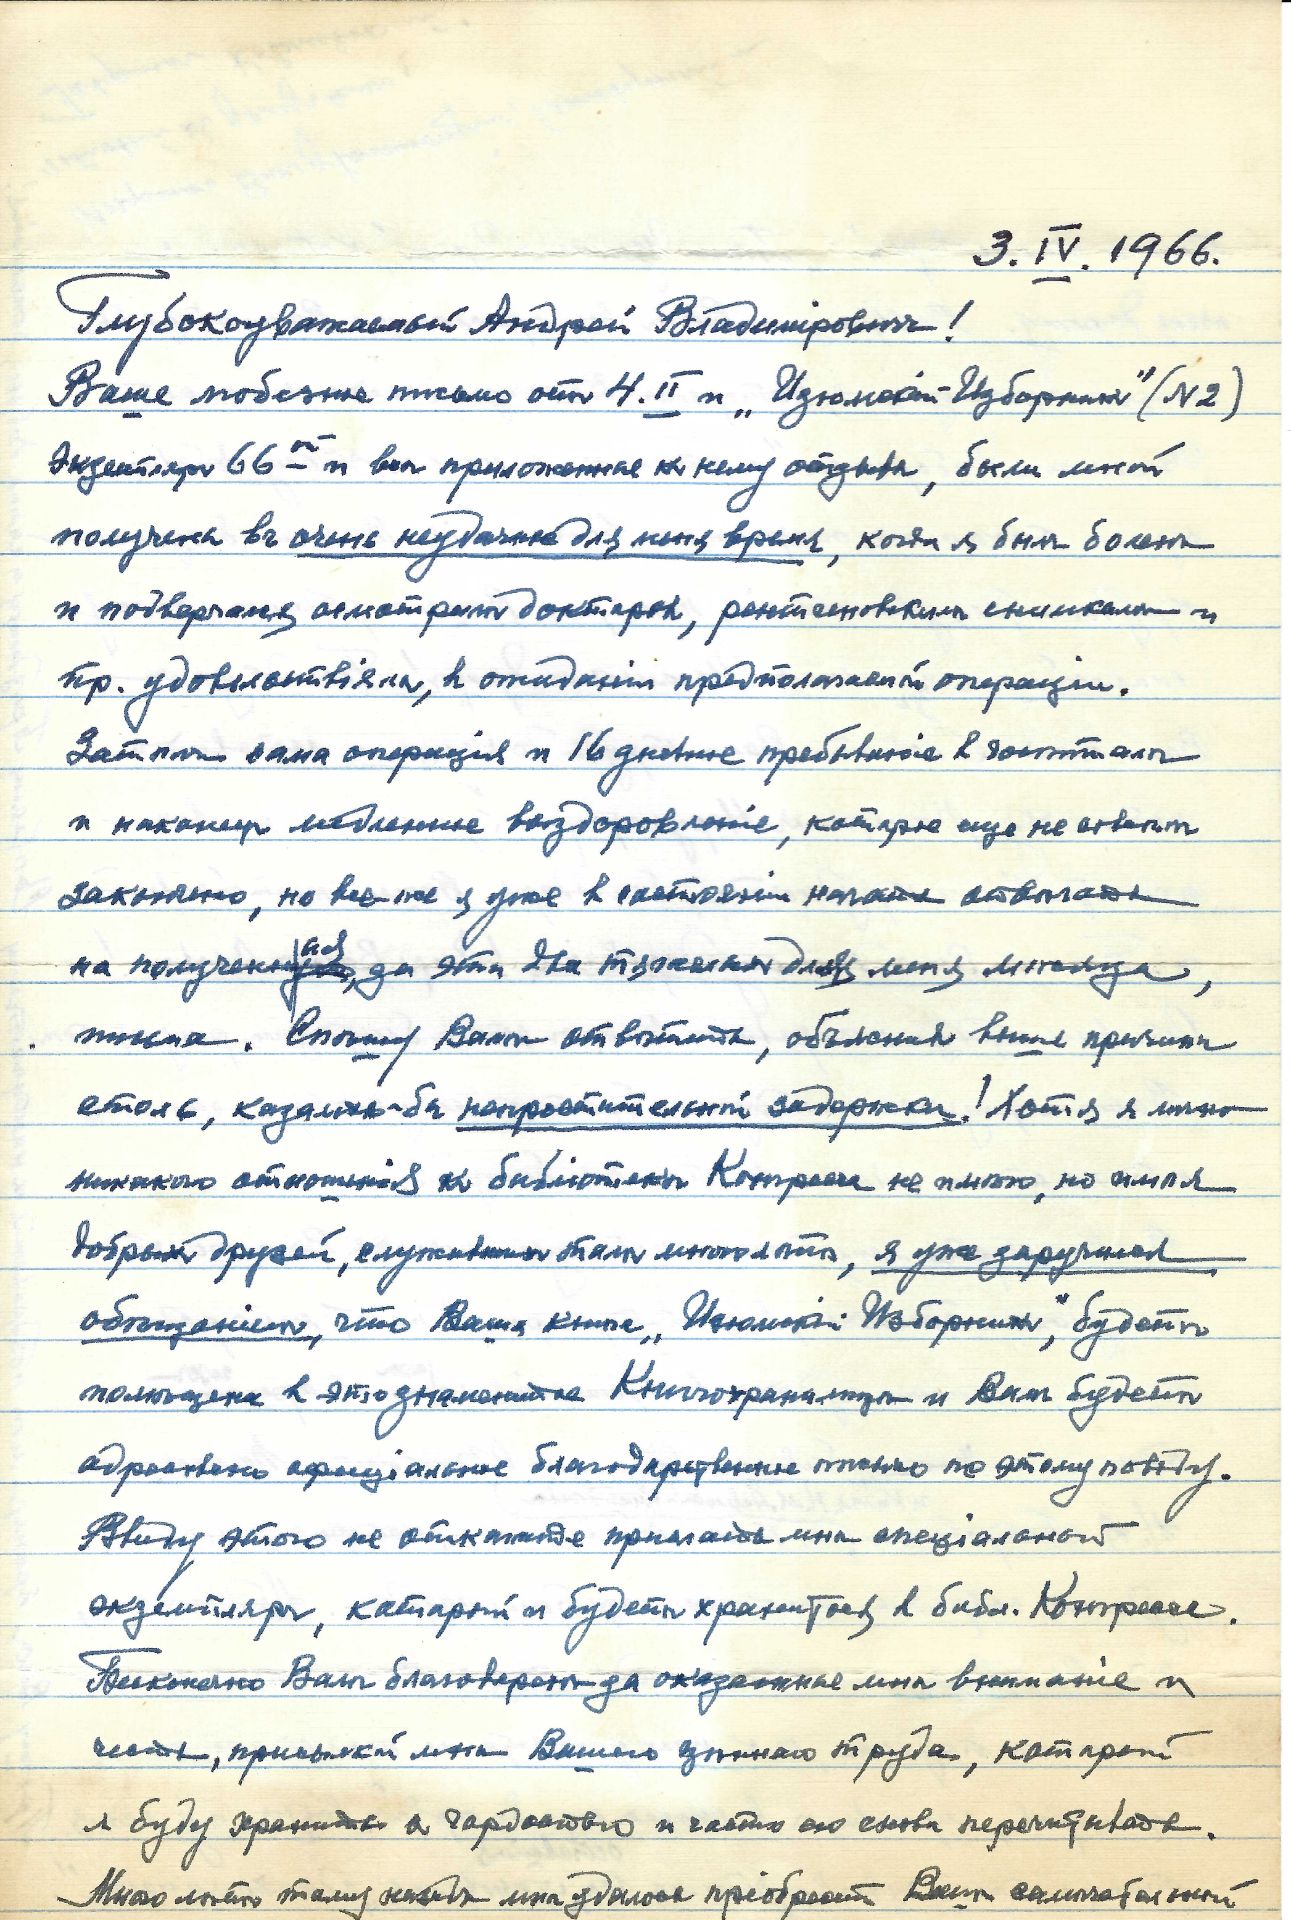 3. IV. 1966.
Глубокоуважаемый Андрей Владимiровичъ!
Ваше любезное письмо отъ 4. II и „Изюмскiй Изборникъ" (N 2)
экземпляръ 66й и все приложенное къ нему отзывы, были мной
получены въ очень неудачное для меня время, когда я былъ боленъ
и подвергался осмотрамъ докторовъ, рентгеновскимъ снимкамъ и
пр. удовольствiямъ, в ожиданiи предполагаемой операцiи.
Затѣмъ сама операцiя и 16 дневное пребыванiе в госпиталѣ
и наконецъ медленное выздоровленiе, которое еще не совсѣмъ
закончено, но все-же я уже в состоянiи начать отвѣчать
на полученныя, за эти два тяжелыхъ для меня мѣсяца,
письма. Спѣшу Вамъ отвѣтить, объяснивъ выше причины
столь, казалось-бы непростительной задержки! Хотя я лично
никакого отношенiя къ библiотекѣ Конгресса не имѣю, но имѣя
добрыхъ друзей, служившихъ тамъ много лѣтъ, я уже заручился
обѣщанiемъ, что Ваша книга „Изюмскiй Изборникъ", будетъ
помѣщена в это знаменитое Книгохранилище и Вамъ будетъ
адресовано офицiальное благодарственное письмо по этому поводу.
Ввиду этого не откажите прислать мнѣ спецiальной
экземпляръ, который и будетъ храниться в библ. Конгресса.
Безконечно Вамъ благодаренъ за оказанное мнѣ вниманiе и
честь, присылкой мнѣ Вашего цѣннаго труда, который
я буду хранить съ гордостью и часто его снова перечитывать.
Много лѣтъ тому назадъ мнѣ удалось прiобрести Вашъ замѣчательный